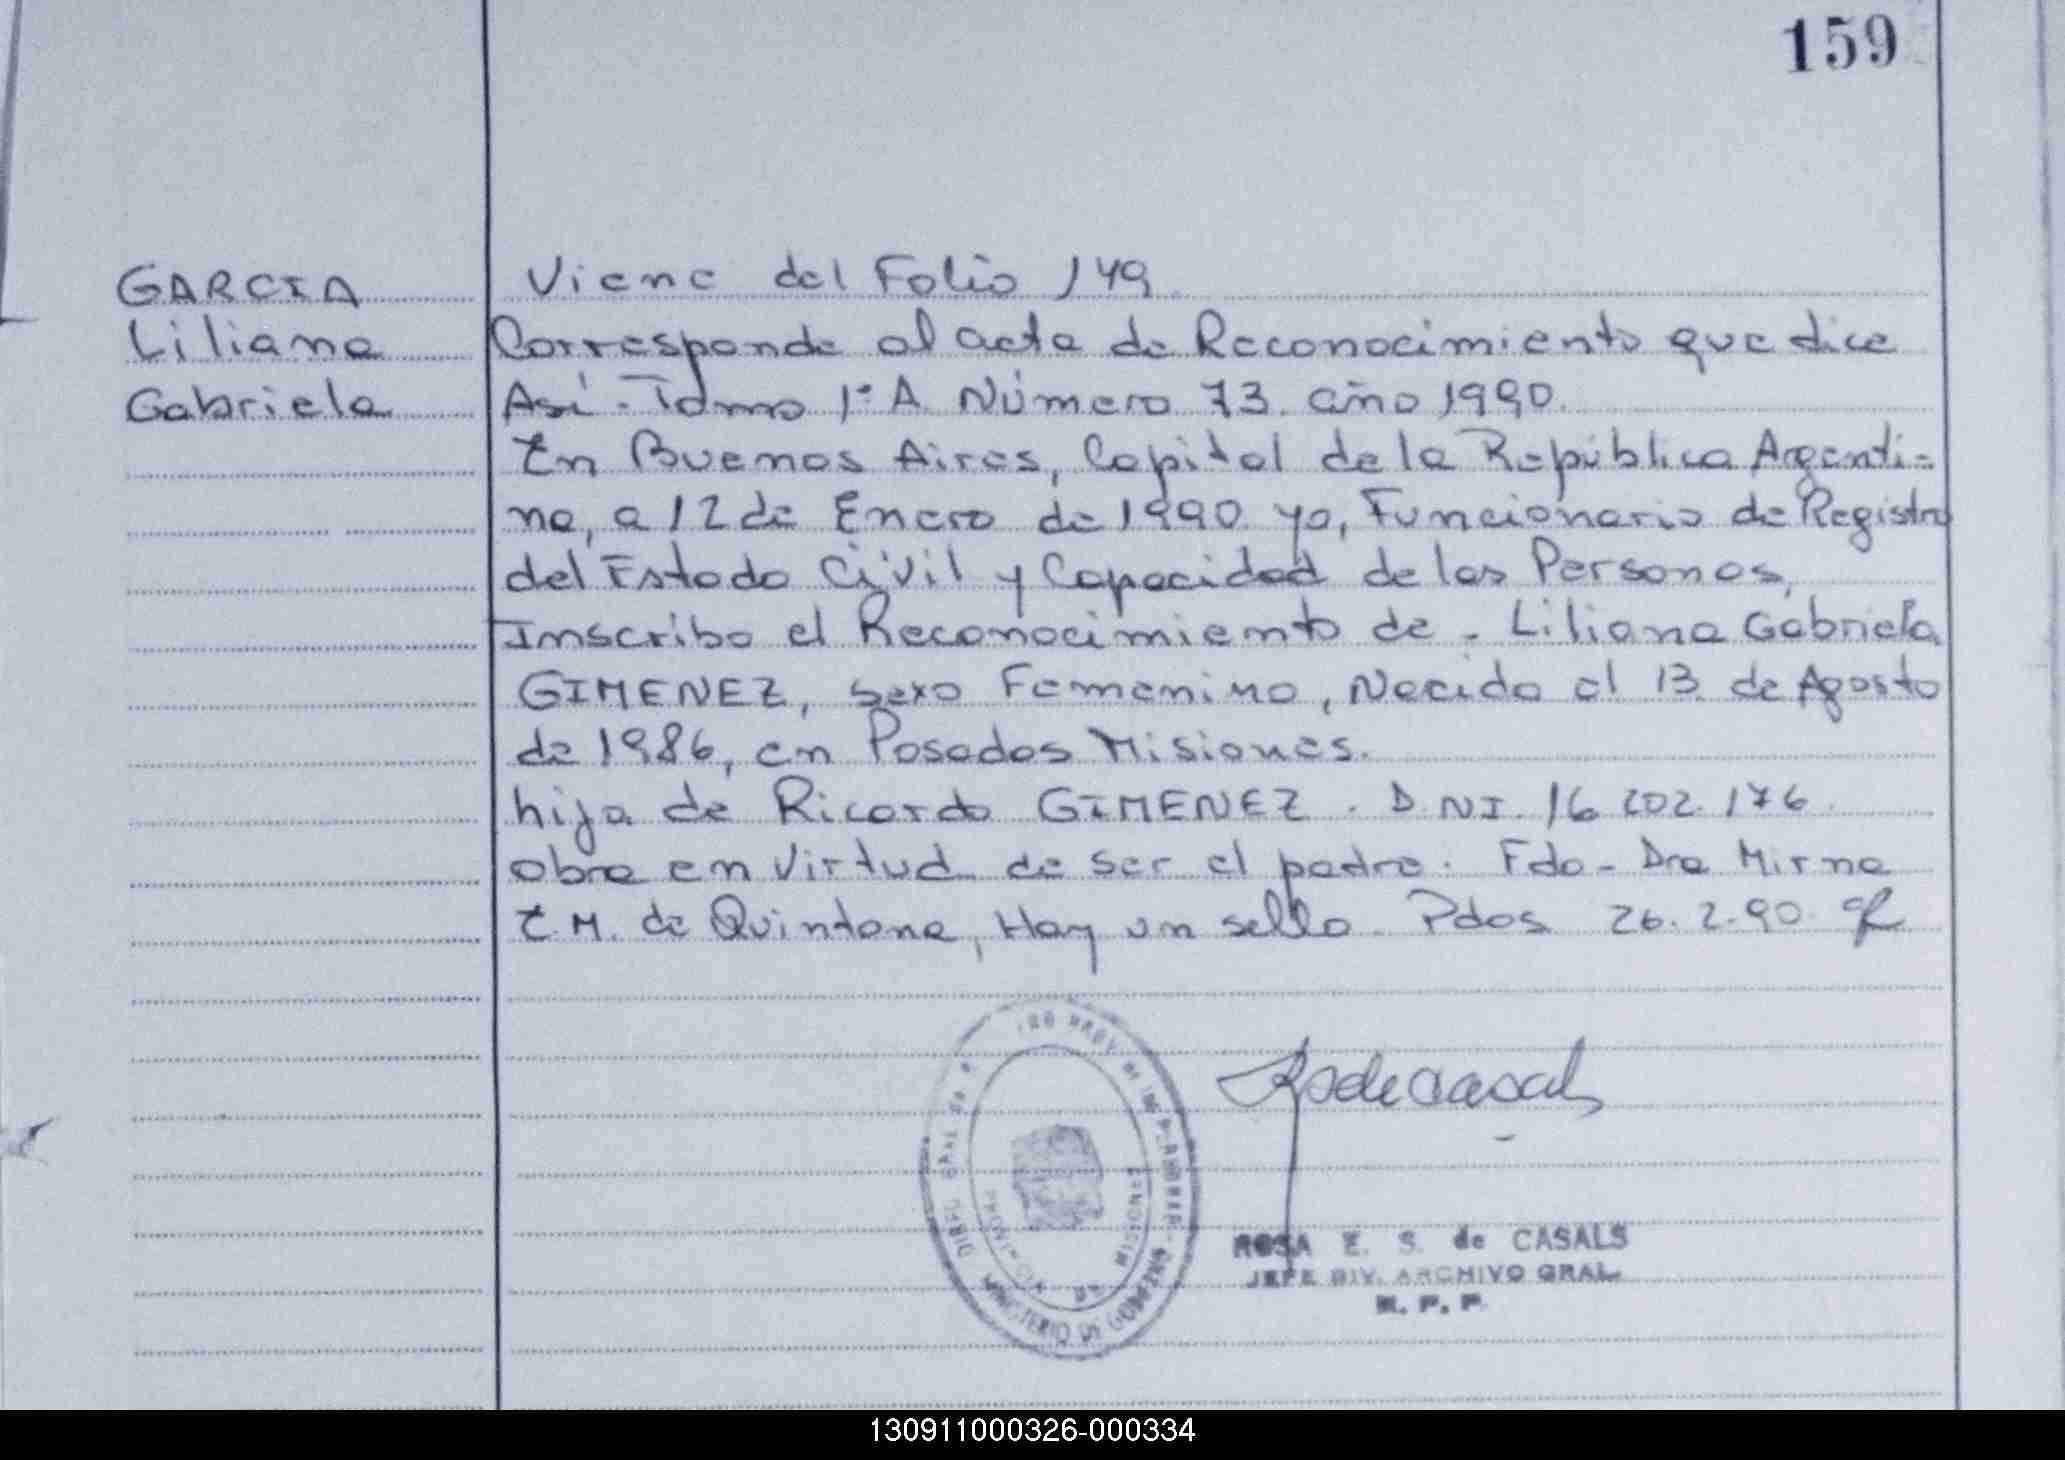 159
GARCIA
Liliana
Gabriela
Viene del Folio 149
Corresponde al acta de Reconocimiento que dice
Así - Tomo 1º A. Número 73. año 1990.
En Buenos Aires, Capital de la República Argenti-
na, a 12 de Enero de 1990 yo, Funcionario de Registro
del Estado Civil y Capacidad de las Personas,
Inscribo el Reconocimiento de - Liliana Gabriela
GIMENEZ, sexo Femenino, Nacida el 13 de Agosto
de 1986, en Posadas Misiones.
hija de Ricardo GIMENEZ. D.NI. 16 202.176.
obra en virtud de ser el padre. Fdo - Dra Mirna
E.M. de Quintana, Hay un sello. Pdos 26.2.90.
MINISTERIO DE GOBIERNO
ROSA E. S. de CASALS
JEFE DIV. ARCHIVO GRAL.
R. P. P.
130911000326-000334